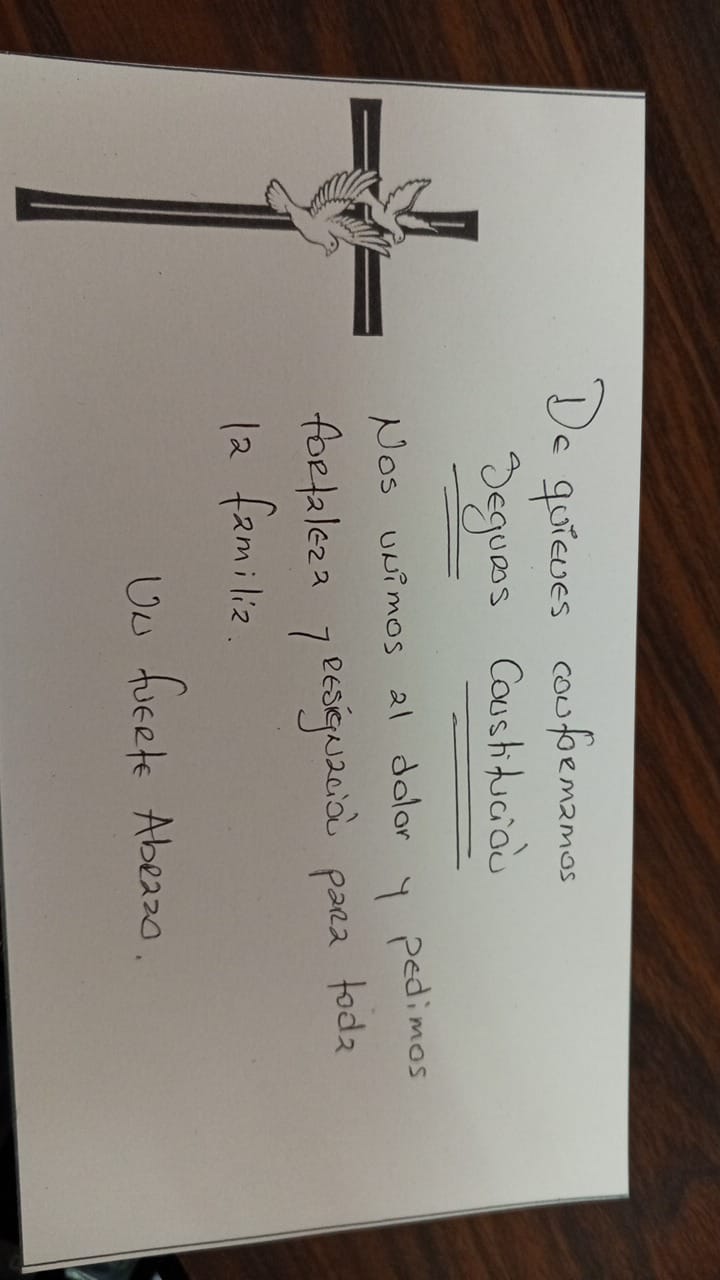 De quienes conformamos
Seguros Constitución
Nos unimos al dolor y pedimos
fortaleza y resignación para toda
la familia.
Un fuerte Abrazo.